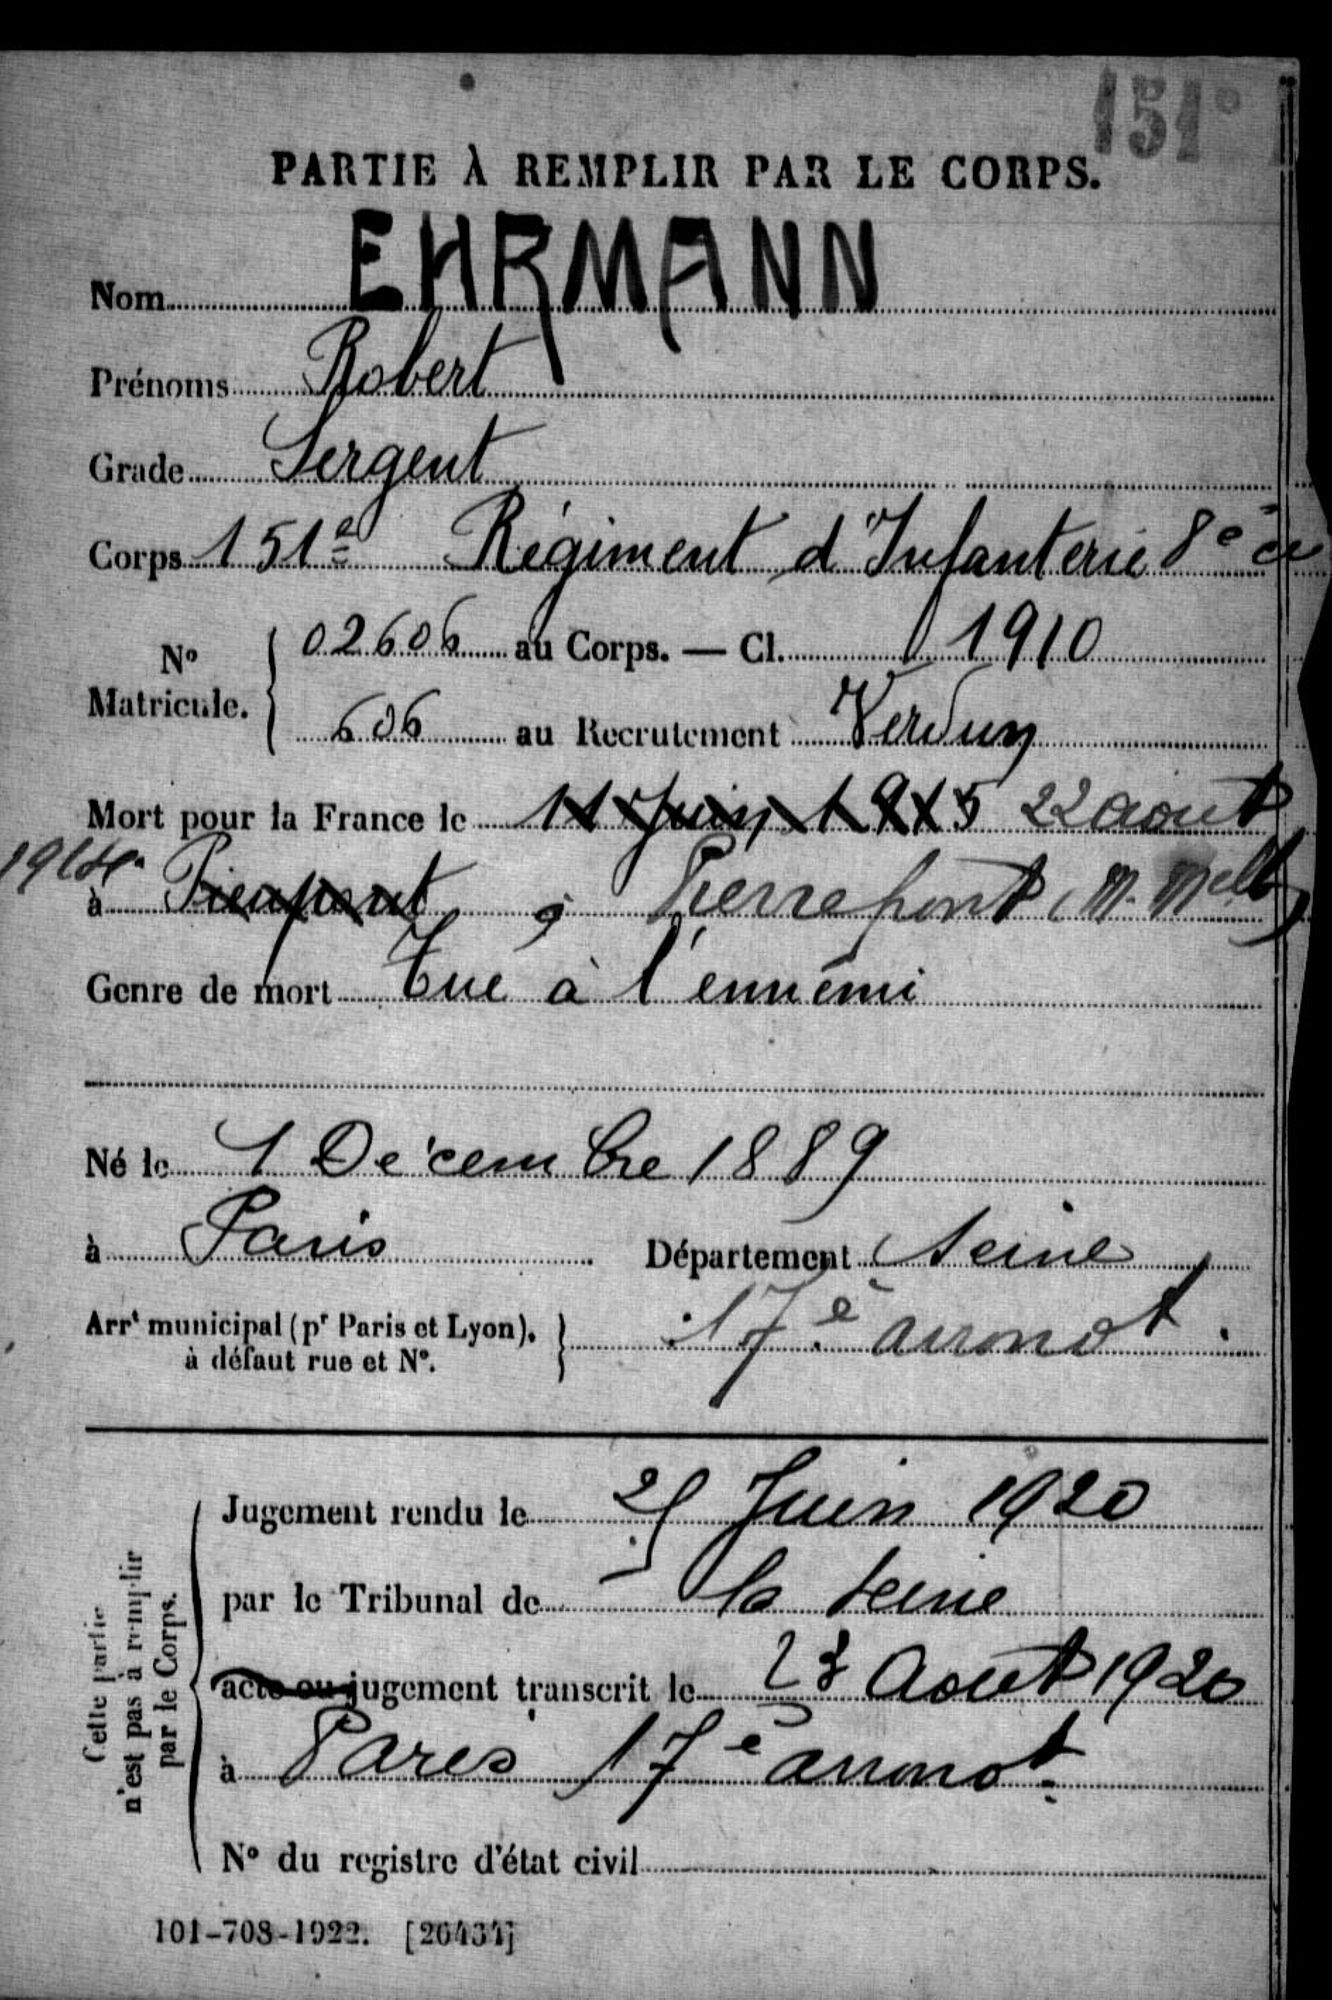 151°
PARTIE À REMPLIR PAR LE CORPS.
Nom EHRMANN
Prénoms Robert
Grade Sergent
Corps 151e Régiment d'Infanterie 8e Cie
N° Matricule. 02606 au Corps. — Cl. 1910
606 au Recrutement Verdun
Mort pour la France le 11 Juin 1915 22 aout
1914
à Pierrepont à Pierrepont (M. Melle)
Genre de mort Tué à l'ennemi
Né le 1 Décembre 1889
à Paris Département Seine
Arrt municipal (pr Paris et Lyon), 17e arrondt.
à défaut rue et N°.
Cette partie
n'est pas à remplir
par le Corps.
Jugement rendu le 25 Juin 1920
par le Tribunal de la Seine
acte ou jugement transcrit le 23 Aout 1920
à Paris 17e arrondt.
N° du registre d'état civil
101-708-1922. [26434]